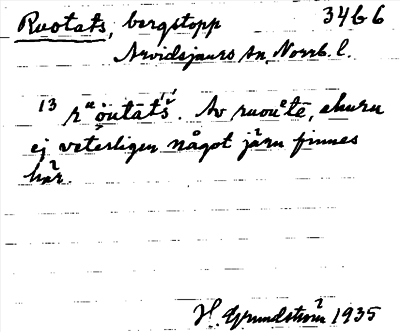 Ruotats, bergstopp 34b6
Arvidsjaurs sn, Norrb. l.
13 rᵘöutátś. Av ruouᵉtē, ehuru
ej veterligen något järn finnes
här.
H. Grundström 1935